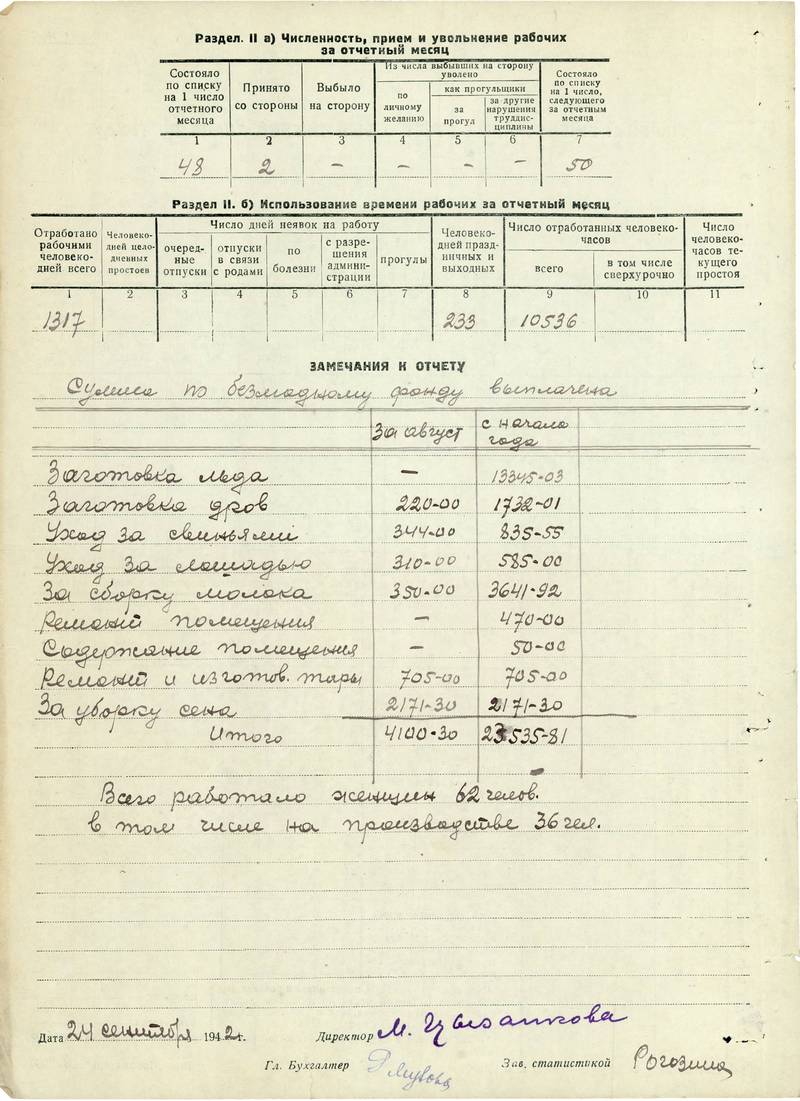 Раздел. II а) Численность, прием и увольнение рабочих
за отчетный месяц
Состояло по списку на 1 число отчетного месяца
Принято со стороны
Выбыло на сторону
Из числа выбывших на сторону уволено
по личному желанию
как прогульщики
за прогул
за другие нарушения труддисциплины
Состояло по списку на 1 число, следующего за отчетным месяца
1 2 3 4 5 6 7
48 2 — — — — 50
Раздел II. б) Использование времени рабочих за отчетный месяц
Отработано рабочими человеко-дней всего
Человеко-дней целодневных простоев
Число дней неявок на работу
очередные отпуски
отпуски в связи с родами
по болезни
с разрешения администрации
прогулы
Человеко-дней праздничных и выходных
Число отработанных человеко-часов
всего
в том числе сверхурочно
Число человеко-часов текущего простоя
1 2 3 4 5 6 7 8 9 10 11
1317 233 10536
ЗАМЕЧАНИЯ К ОТЧЕТУ
Сумма по безлюдному фонду выплачена
За август с начала года
Заготовка льда — 13345-03
Заготовка дров 220-00 1732-01
Уход за свиньями 344-00 835-55
Уход за лошадью 310-00 585-00
За сборку молока 350-00 3641-92
Ремонт помещения — 470-00
Содержание помещения — 50-00
Ремонт и изготов. тары 705-00 705-00
За уборку сена 2171-30 2171-30
Итого 4100-30 23535-81
Всего работало женщин 62 челов.
в том числе на производстве 36 чел.
Дата 24 сентября 1942г. Директор М.
Гл. Бухгалтер Зав. статистикой Рогозина